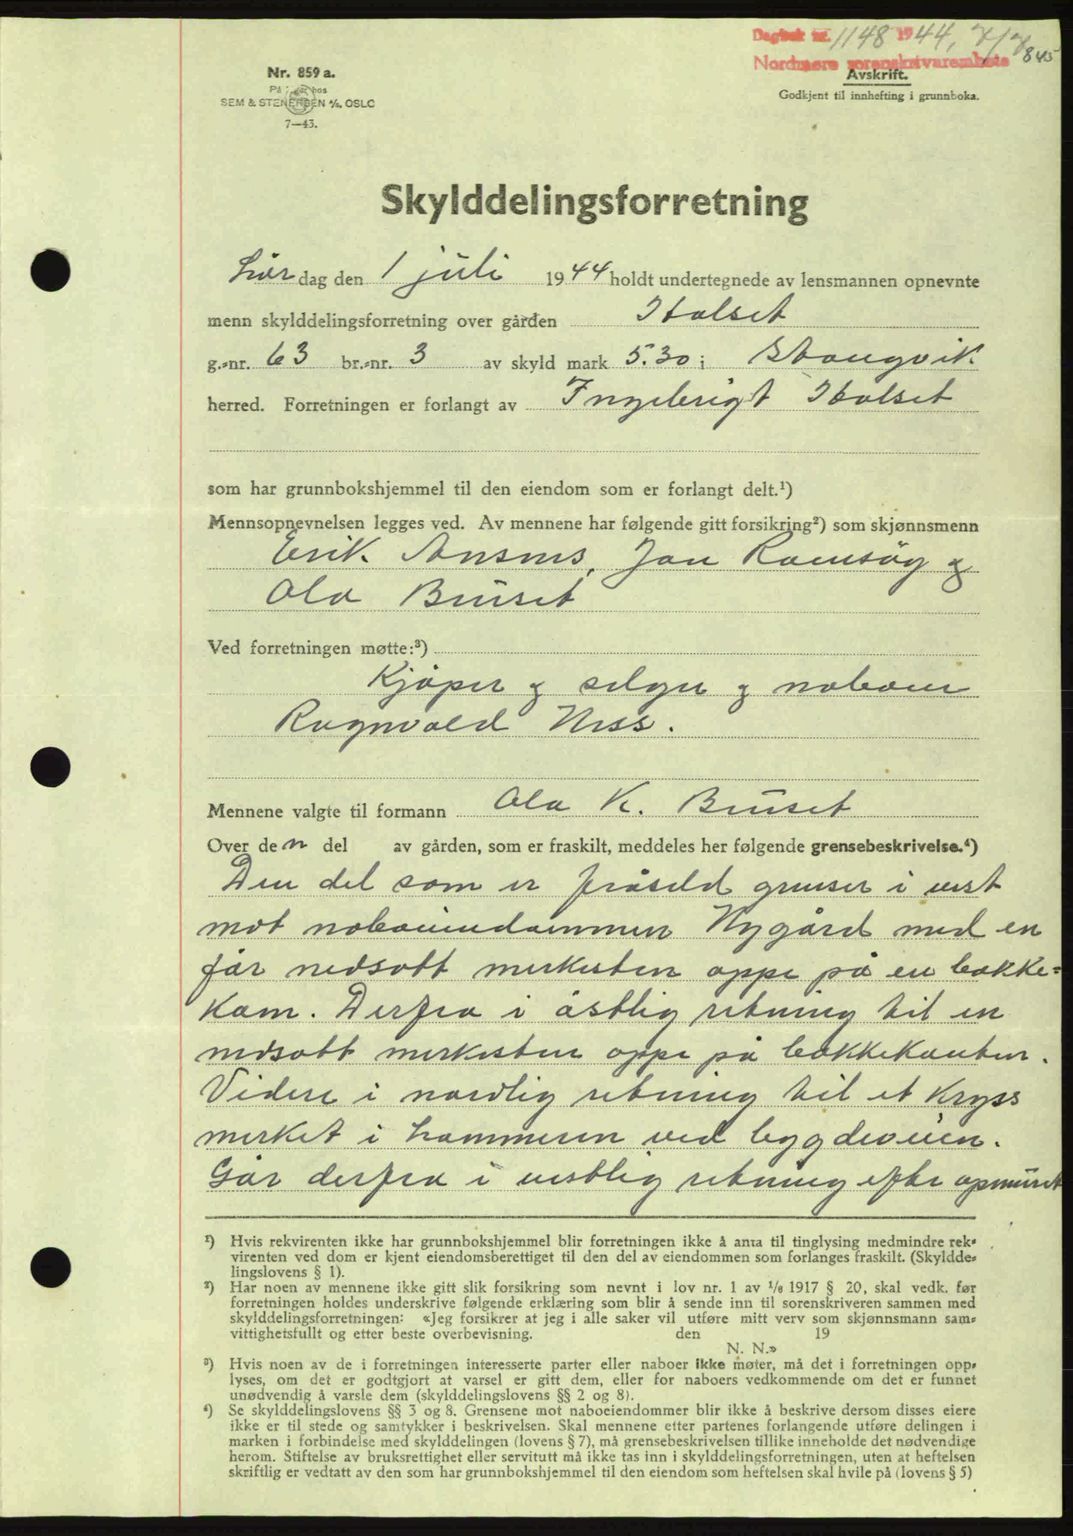 Dagbok nr. 1148 1944, 7/7
Nordmøre sorenskriverembete 845
Nr. 859 a.
SEM & STENERSEN A/S, OSLO
7—43.
Avskrift.
Godkjent til innhefting i grunnboka.
Skylddelingsforretning
Lørdag den 1 juli 1944 holdt undertegnede av lensmannen opnevnte
menn skylddelingsforretning over gården Halset
g.-nr. 63 br.-nr. 3 av skyld mark 5.30 i Stangvik
herred. Forretningen er forlangt av Ingebrigt Halset
som har grunnbokshjemmel til den eiendom som er forlangt delt.¹)
Mennsopnevnelsen legges ved. Av mennene har følgende gitt forsikring²) som skjønnsmenn
Erik Ansnes, Jon Ramsøy og
Ola Buset
Ved forretningen møtte:³)
Kjøper og selger og naboen
Ragnvald Ness.
Mennene valgte til formann Ola K. Buset
Over den del av gården, som er fraskilt, meddeles her følgende grensebeskrivelse.⁴)
Den del som er fråseld grenser i vest
mot naboeiendommen Nygård med en
før nedsatt merkesten oppe på en bakke-
kam. Derfra i østlig retning til en
nedsatt merkesten oppe på bakkekanten.
Videre i nordlig retning til et kryss
merket i hammeren ved bygdeveien.
Går derfra i vestlig retning efter opmuret
¹) Hvis rekvirenten ikke har grunnbokshjemmel blir forretningen ikke å anta til tinglysing medmindre rek-
virenten ved dom er kjent eiendomsberettiget til den del av eiendommen som forlanges fraskilt. (Skyldde-
lingslovens § 1).
²) Har noen av mennene ikke gitt slik forsikring som nevnt i lov nr. 1 av 1/6 1917 § 20, skal vedk. før
forretningen holdes underskrive følgende erklæring som blir å sende inn til sorenskriveren sammen med
skylddelingsforretningen: «Jeg forsikrer at jeg i alle saker vil utføre mitt verv som skjønnsmann sam-
vittighetsfullt og etter beste overbevisning. den 19
N. N.»
³) Hvis noen av de i forretningen interesserte parter eller naboer ikke møter, må det i forretningen opp-
lyses, om det er godtgjort at varsel er gitt dem, eller for naboers vedkommende om det er funnet
unødvendig å varsle dem (skylddelingslovens §§ 2 og 8).
⁴) Se skylddelingslovens §§ 3 og 8. Grensene mot naboeiendommer blir ikke å beskrive dersom disses eiere
ikke er til stede og samtykker i beskrivelsen. Skal mennene etter partenes forlangende utføre delingen i
marken i forbindelse med skylddelingen (lovens § 7), må grensebeskrivelsen tillike inneholde det nødvendige
herom. Stiftelse av bruksrettighet eller servitutt må ikke tas inn i skylddelingsforretningen, uten at heftelsen
skriftlig er vedtatt av den som har grunnbokshjemmel til den eiendom som heftelsen skal hvile på (lovens § 5)